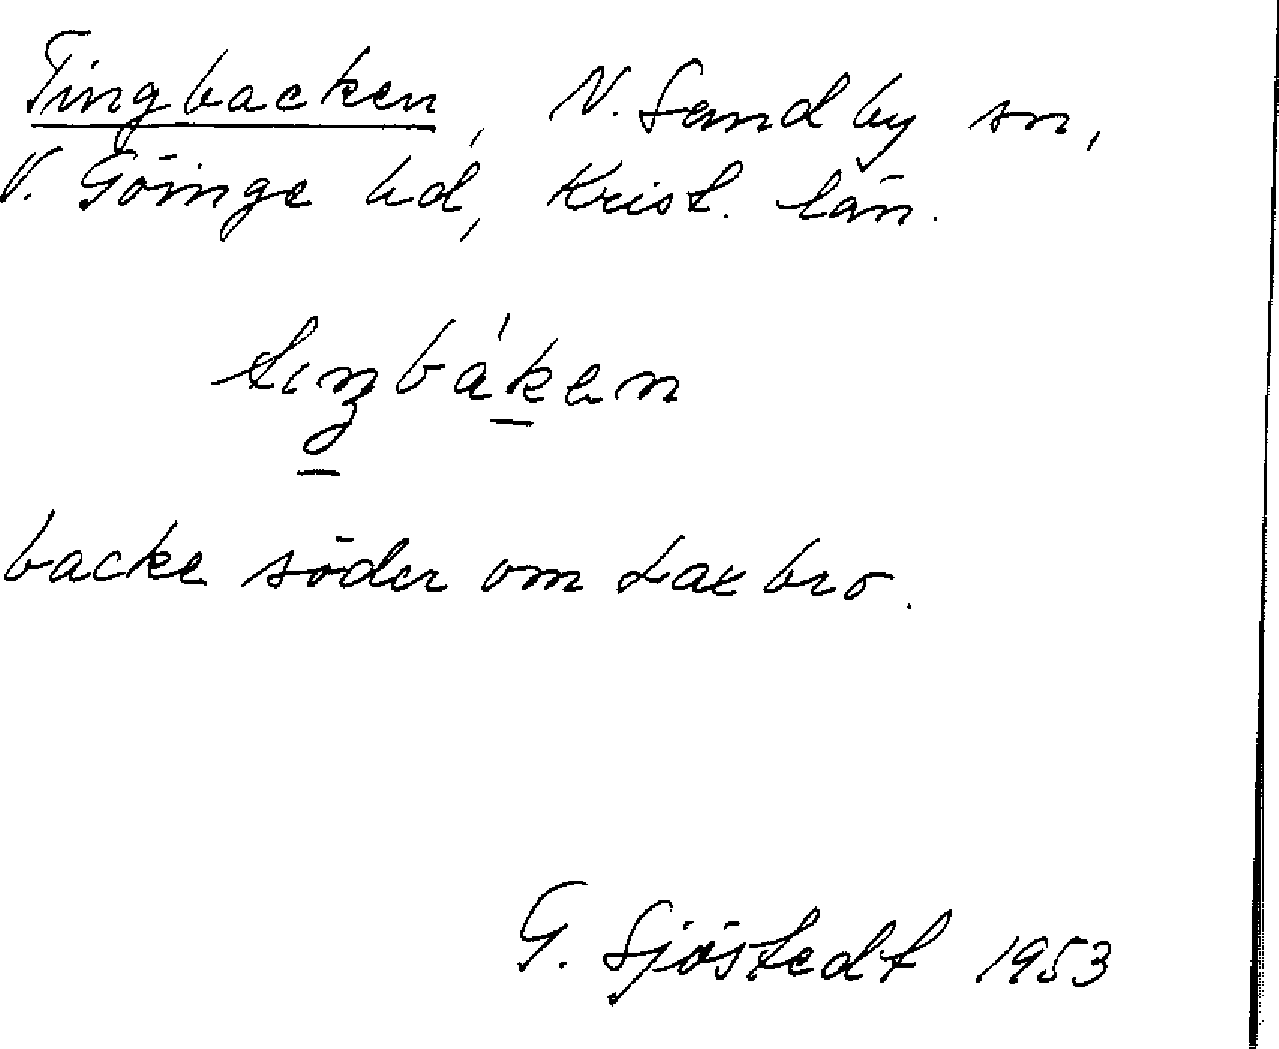 Tingbacken, N. Sandby sn,
V. Göinge hd, Krist. län.
tıŋbákən
backe söder om Laxbro.
G. Sjöstedt 1953